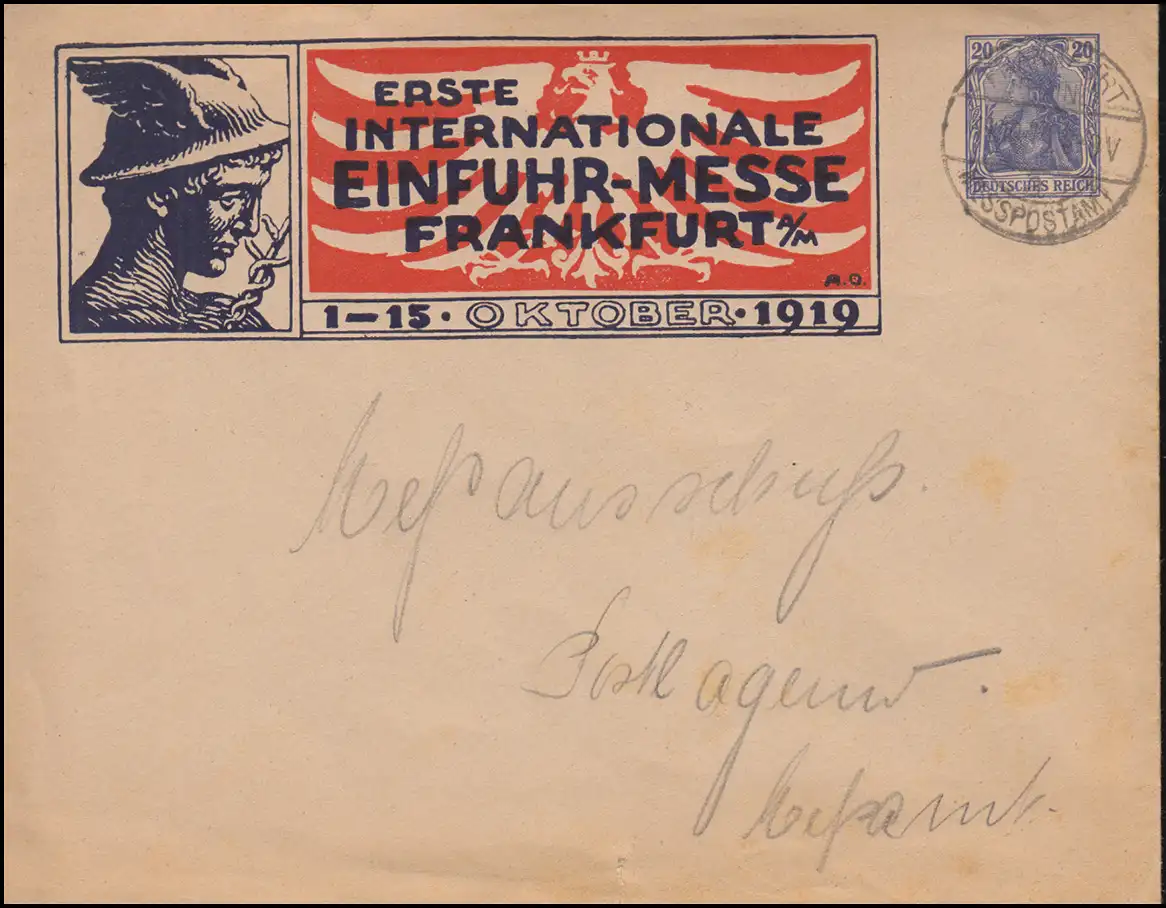 ERSTE
INTERNATIONALE
EINFUHR-MESSE
FRANKFURT A/M
A.O.
1—15 · OKTOBER · 1919
20 20
DEUTSCHES REICH
Meßausschuß.
Postlagernd.
Meßamt.